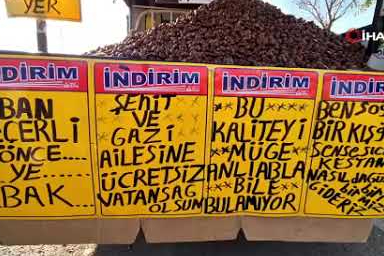 YER
İHA
İNDİRİM
BAN
ÖNCE....
YE
BAK
İNDİRİM
ŞEHİT VE
GAZİ
AİLESİNE
ÜCRETSİZ
VATANSAĞ
OLSUN
İNDİRİM
BU
KALİTEYİ
MÜGE
ANLIABLA
BİLE
BULAMIYOR
İNDİRİM
BEN SO
BİR KIŞ
SENSE SICA
KESTAN
NASIL DAĞ
GİDERİZ